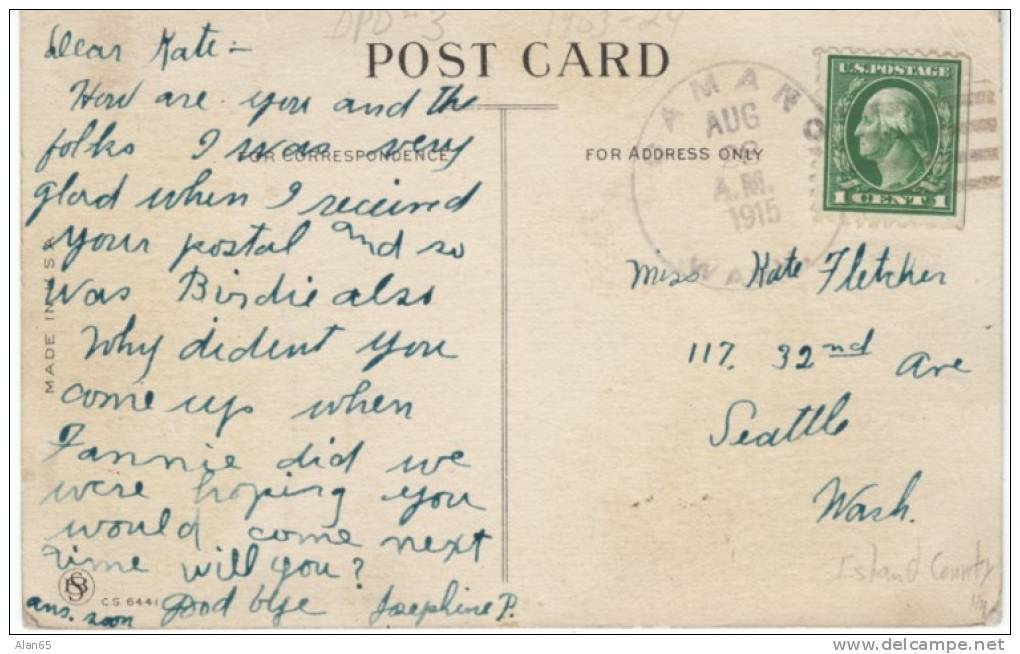 DPO #3 1903-24
POST CARD
Dear Kate:-
How are you and the
folks I was very
glad when I received
your postal and so
was Birdie also
Why dident you
come up when
Fannie did we
were hoping you
would come next
time will you?
Good bye Josephine P.
ans. soon
FOR CORRESPONDENCE
MADE IN U.S.A.
PSB
C.S 6441
FOR ADDRESS ONLY
CAMANO
AUG
28
A.M.
1915
WASH.
U.S. POSTAGE
1 CENT 1
Miss Kate Fletcher
117. 32nd Ave
Seattle
Wash.
Island County
Alan65
www.delcampe.net